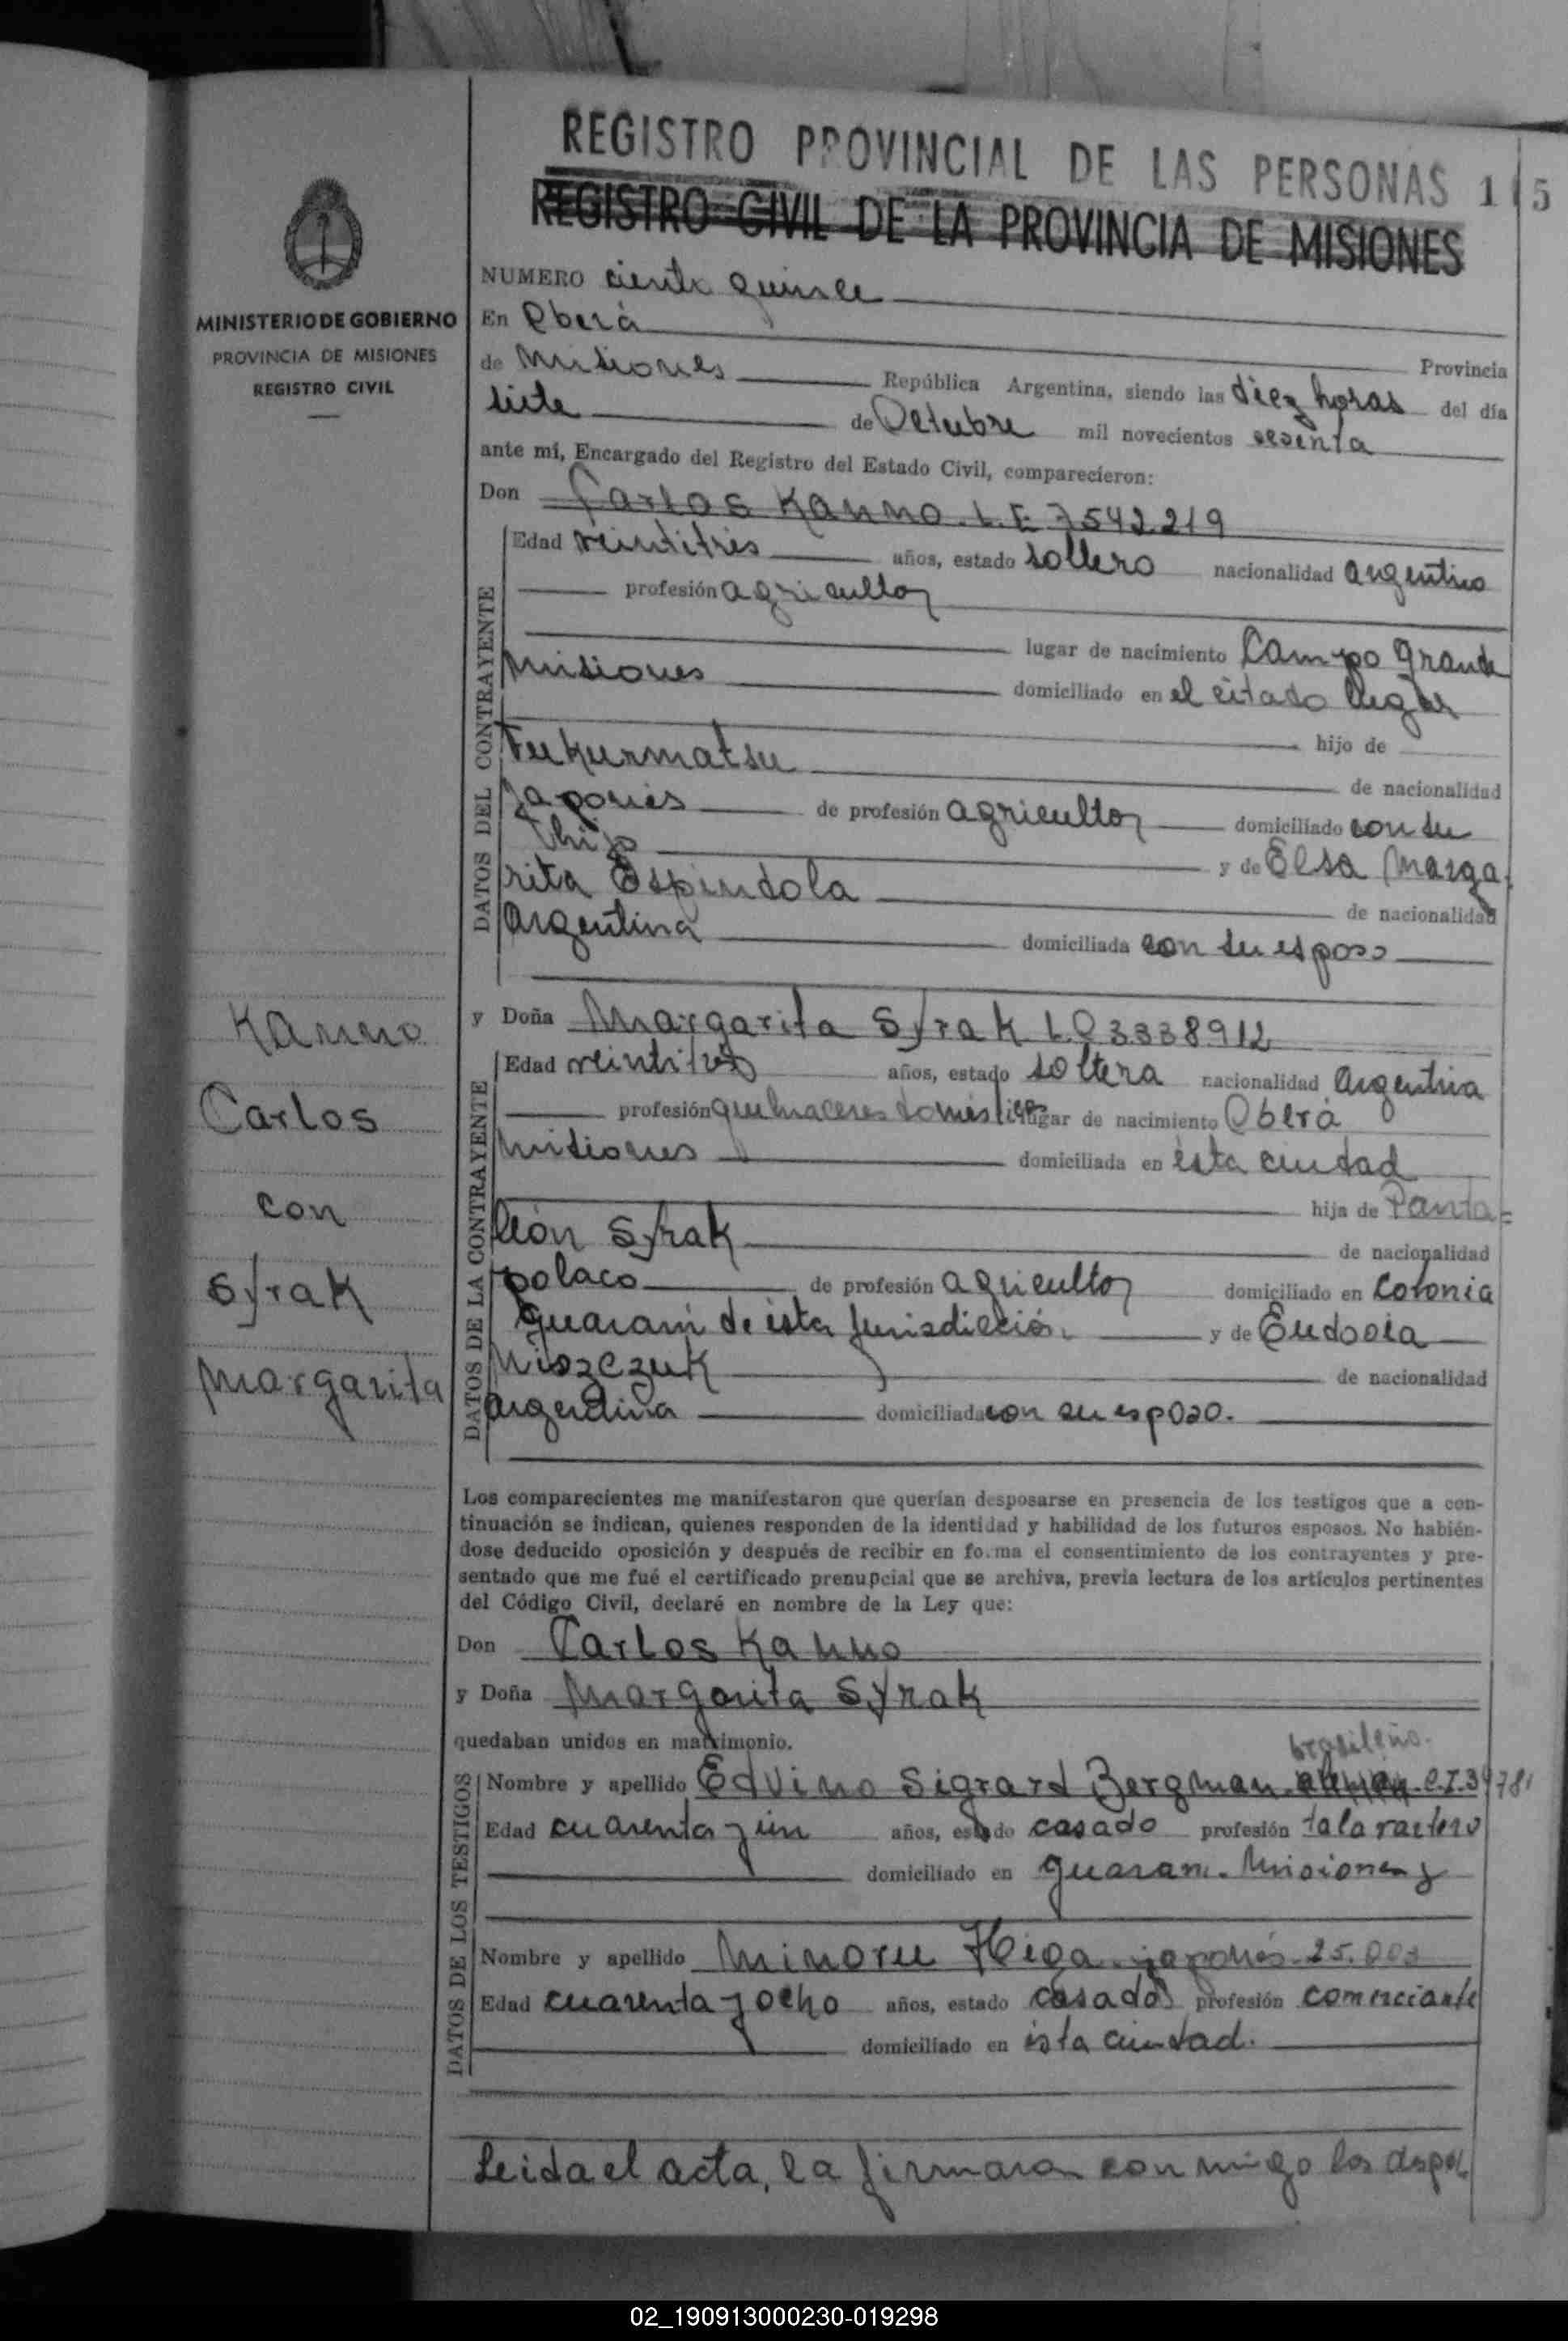 REGISTRO PROVINCIAL DE LAS PERSONAS 115
REGISTRO CIVIL DE LA PROVINCIA DE MISIONES
MINISTERIO DE GOBIERNO
PROVINCIA DE MISIONES
REGISTRO CIVIL
NUMERO ciento quince
En Oberá
Provincia
de Misiones República Argentina, siendo las diez horas del día
siete de Octubre mil novecientos sesenta
ante mí, Encargado del Registro del Estado Civil, comparecieron:
Don Carlos Kanno. L.E 7542219
DATOS DEL CONTRAYENTE
Edad veintitrés años, estado soltero nacionalidad argentino
profesión agricultor
lugar de nacimiento Campo Grande
Misiones domiciliado en el citado lugar
hijo de
de nacionalidad
japonés de profesión agricultor domiciliado con su
hijo y de Elsa Marga
rita Espindola de nacionalidad
argentina domiciliada con su esposo
Kanno
Carlos
con
Syrak
Margarita
y Doña Margarita Syrak L.C 3338912
DATOS DE LA CONTRAYENTE
Edad veintitrés años, estado soltera nacionalidad argentina
profesión quehaceres domésticos lugar de nacimiento Oberá
Misiones domiciliada en ésta ciudad
hija de Panta=
león Syrak de nacionalidad
polaco de profesión agricultor domiciliado en Colonia
Guaraní de ésta Jurisdicción y de Eudocia
Niszczuk de nacionalidad
argentina domiciliada con su esposo.
Los comparecientes me manifestaron que querían desposarse en presencia de los testigos que a con-
tinuación se indican, quienes responden de la identidad y habilidad de los futuros esposos. No habién-
dose deducido oposición y después de recibir en forma el consentimiento de los contrayentes y pre-
sentado que me fué el certificado prenupcial que se archiva, previa lectura de los artículos pertinentes
del Código Civil, declaré en nombre de la Ley que:
Don Carlos Kanno
y Doña Margarita Syrak
quedaban unidos en matrimonio.
brasileño.
DATOS DE LOS TESTIGOS
Nombre y apellido Edvino Sigrard Bergman. C.I. 34781
Edad cuarenta y un años, estado casado profesión talabartero
domiciliado en Guaraní. Misiones y
Nombre y apellido Minoru Higa. japonés 25.003
Edad cuarenta y ocho años, estado casado profesión comerciante
domiciliado en ésta ciudad.
Leida el acta, la firmaron conmigo los despo
02_190913000230-019298